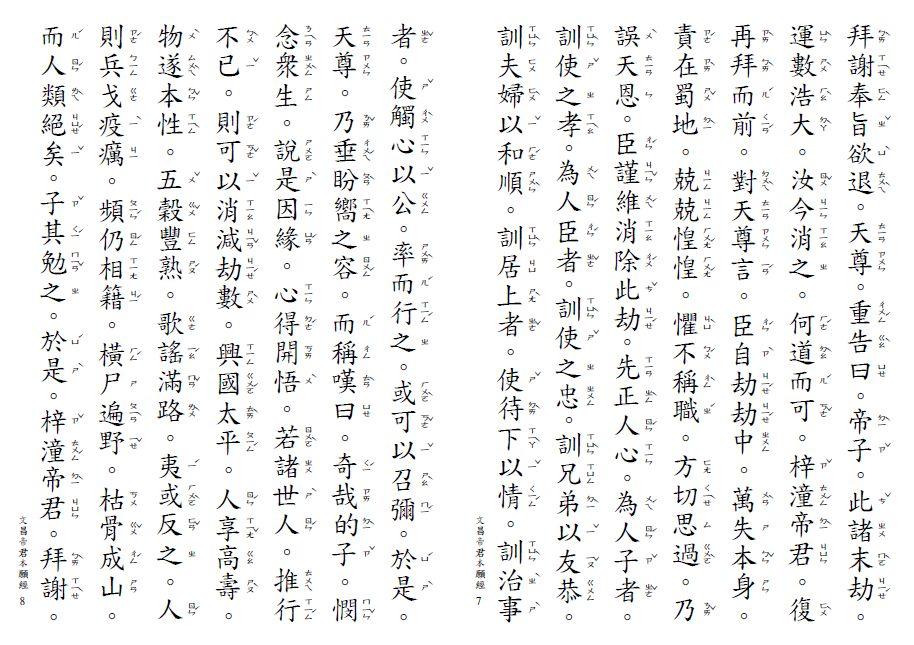 拜謝奉旨欲退。天尊。重告曰。帝子。此諸末劫。
運數浩大。汝今消之。何道而可。梓潼帝君。復
再拜而前。對天尊言。臣自劫劫中。萬失本身。
責在蜀地。兢兢惶惶。懼不稱職。方切思過。乃
誤天恩。臣謹維消除此劫。先正人心。為人子者。
訓使之孝。為人臣者。訓使之忠。訓兄弟以友恭。
訓夫婦以和順。訓居上者。使待下以情。訓治事
文昌帝君本願經 7
者。使觸心以公。率而行之。或可以召彌。於是
天尊。乃垂盼嚮之容。而稱嘆曰。奇哉的子。憫
念衆生。說是因緣。心得開悟。若諸世人。推行
不已。則可以消減劫數。興國太平。人享高壽。
物遂本性。五穀豐熟。歌謠滿路。夷或反之。人
則兵戈疫癘。頻仍相籍。橫尸遍野。枯骨成山。
而人類絕矣。子其勉之。於是。梓潼帝君。拜謝。
文昌帝君本願經 8